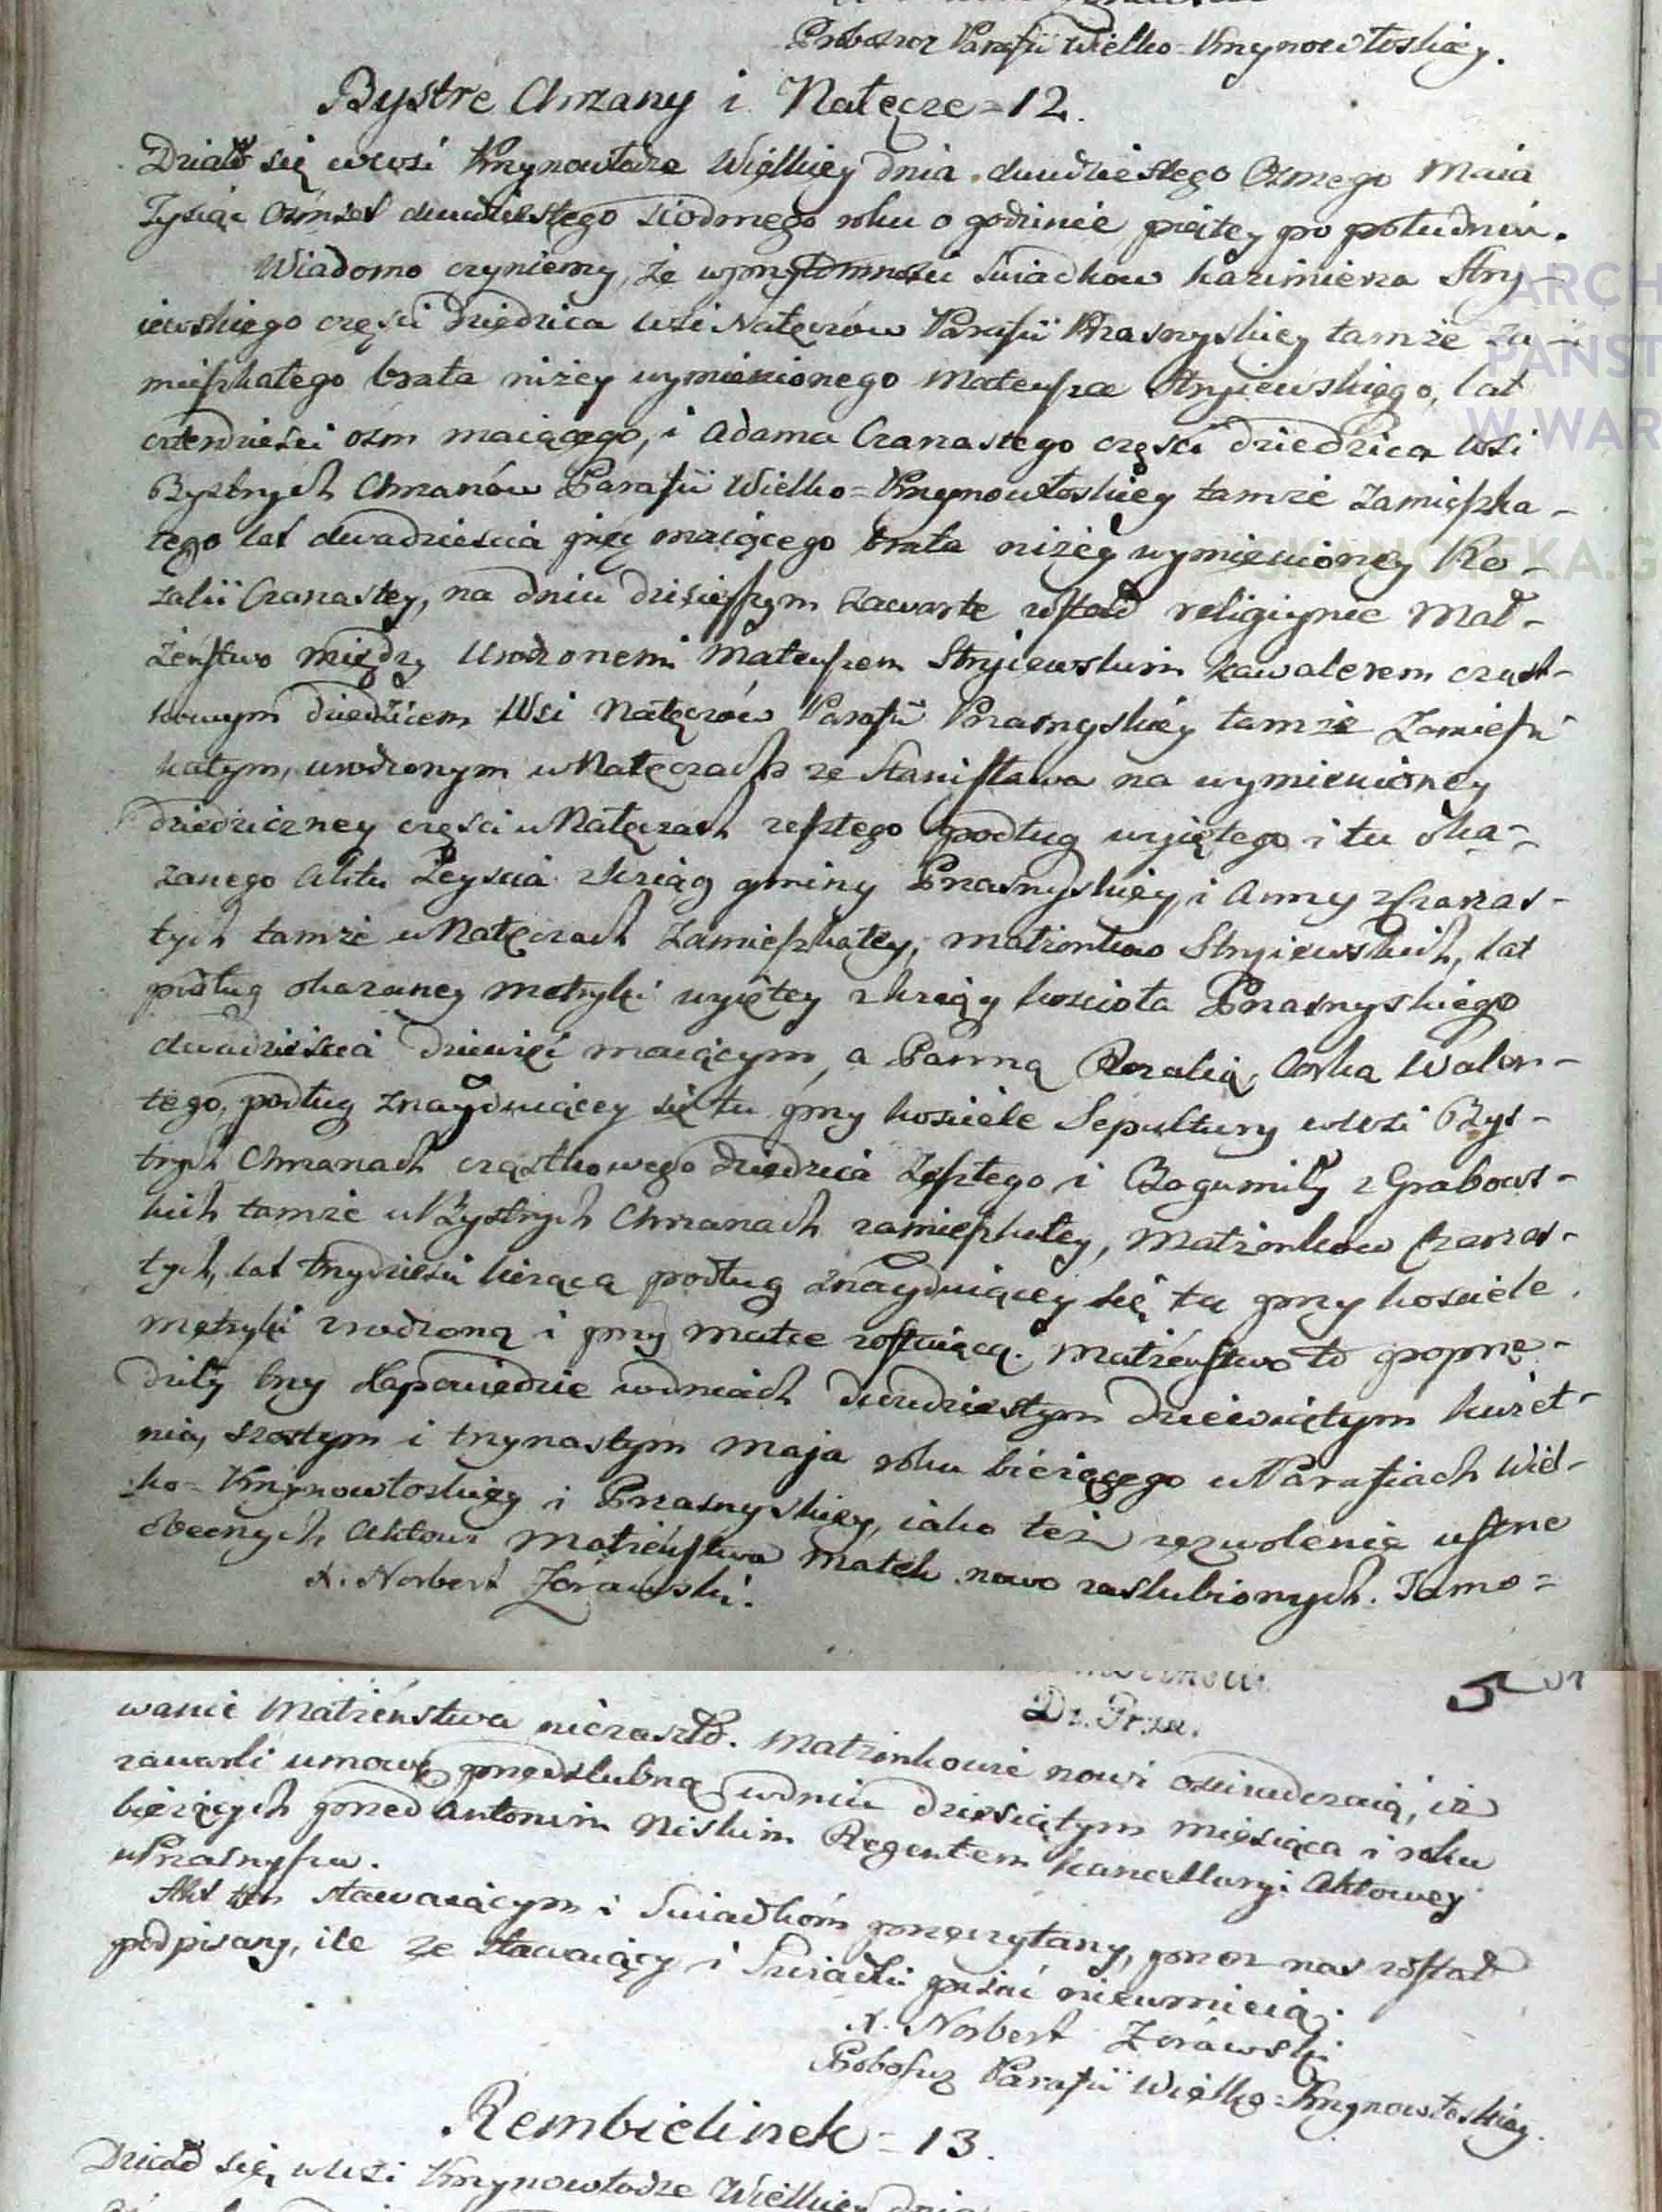 Proboszcz Parafii Wielko-Krzynowłoskiey.
Bystre Chrzany i Nałęcze = 12.
Działo się w wsi Krzynowłodze Wielkiey dnia dwudziestego Osmego Maia
Tysiąc Osmset dwudziestego siodmego roku o godzinie piątey po południu.
Wiadomo czyniemy, że w przytomności Swiadkow Kazimierza Stry-
iewskiego części Dziedzica wsi Nałęczów Parafii Przasnyskiey tamże za-
mieszkałego brata niżey wymienionego Mateusza Stryiewskiego, lat
czterdzieści osm maiącego, i Adama Czarnastego części dziedzica wsi
Bystrych Chrzanów Parafii Wielko=Krzynowłoskiey tamże zamieszka-
łego lat dwadzieścia pięć maiącego brata niżey wymienioney Ro-
zalii Czarnastey, na dniu dzisieyszym zawarte zostało religiyne Mał-
żeństwo między Urodzonemi Mateuszem Stryiewskim kawalerem cząst-
kowym dziedzicem Wsi Nałęczów Parafii Przasnyskiéy tamże Zamiesz
kałym, urodzonym w Nałęczach ze Stanisława na wymienioney
dziedziczney części w Nałęczach zeszłego podług wyiętego i tu oka-
zanego Aktu Zeyścia z ksiąg gminy Przasnyskiey, i Anny z Czarnas-
tych tamże w Nałęczach Zamieszkałey, małżonków Stryiewskich, lat
podług okazaney metryki wyiętey z ksiąg kościoła Przasnyskiego
dwadzieścia dziewięć maiącym, a Panną Rozalią, Córką Walen-
tego, podług znayduiącey się tu przy kościele Sepultury w wsi Bys-
trych Chrzanach cząstkowego Dziedzica Zeszłego i Bogumiły z Grabows-
kich tamże w Bystrych Chrzanach zamieszkałey, Małżonków Czarnas-
tych, lat trzydzieści liczącą podług znayduiącey się tu przy kościele
metryki zrodzoną i przy matce zostaiącą. Małżeństwo to poprze-
dziły trzy Zapowiedzie w dniach dwudziestym dziewiątym kwiet-
nia, szostym i trzynastym maja roku bieżącego w Parafiach Wiel-
ko=Krzynowłoskiey i Przasnyskiey, iako też zezwolenie ustne
obecnych Aktowi Małżeństwa Matek nowo zaslubionych. Tamo=
X. Norbert Zórawski.
Dz. Prza.
wanie Małżeństwa niezaszło. Małżonkowie nowi oswiadczaią, iż
zawarli umowę przedslubną w dniu dziesiątym miesiąca i roku
bieżących przed Antonim Niskim Regentem kancellaryi Aktowey
w Przasnyszu.
Akt ten stawaiącym i Swiadkóm przeczytany, przez nas został
podpisany, ile że stawaiący i Swiadki pisać nieumieią.
X. Norbert Zórawski
Proboszcz Parafii Wielko=Krzynowłoskiey.
Rembielinek = 13.
Działo się w wsi Krzynowłodze Wielkiey dnia
ARCH
PAŃST
W WAR
SKANOTEKA.G